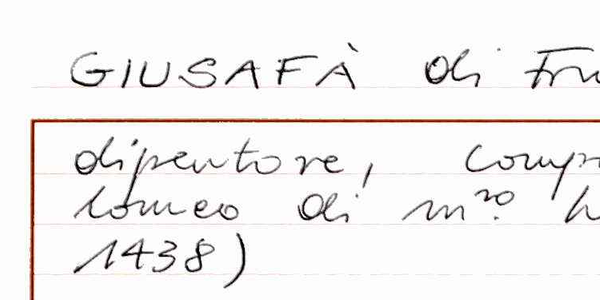 GIUSAFÀ di Fru
dipentore, comp
lomeo di m.ro
1438)